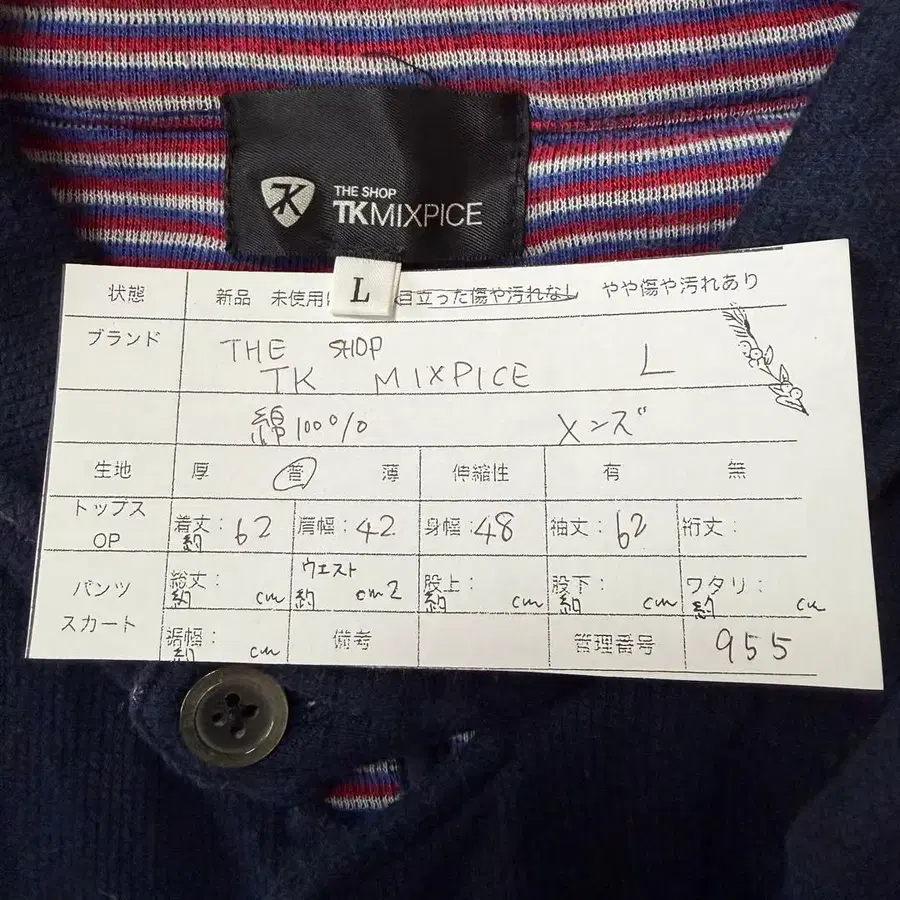 THE SHOP
TKMIXPICE
L
状態 新品 未使用 目立った傷や汚れなし やや傷や汚れあり
ブランド THE SHOP
TK MIXPICE L
綿100% メンズ
生地 厚 普 薄 伸縮性 有 無
トップス
OP
着丈:約 62 肩幅:42 身幅:48 袖丈:62 裄丈:
パンツ
スカート
総丈:約 cm ウエスト約 cm2 股上:約 cm 股下:約 cm ワタリ:約 cm
裾幅:約 cm 備考 管理番号 955